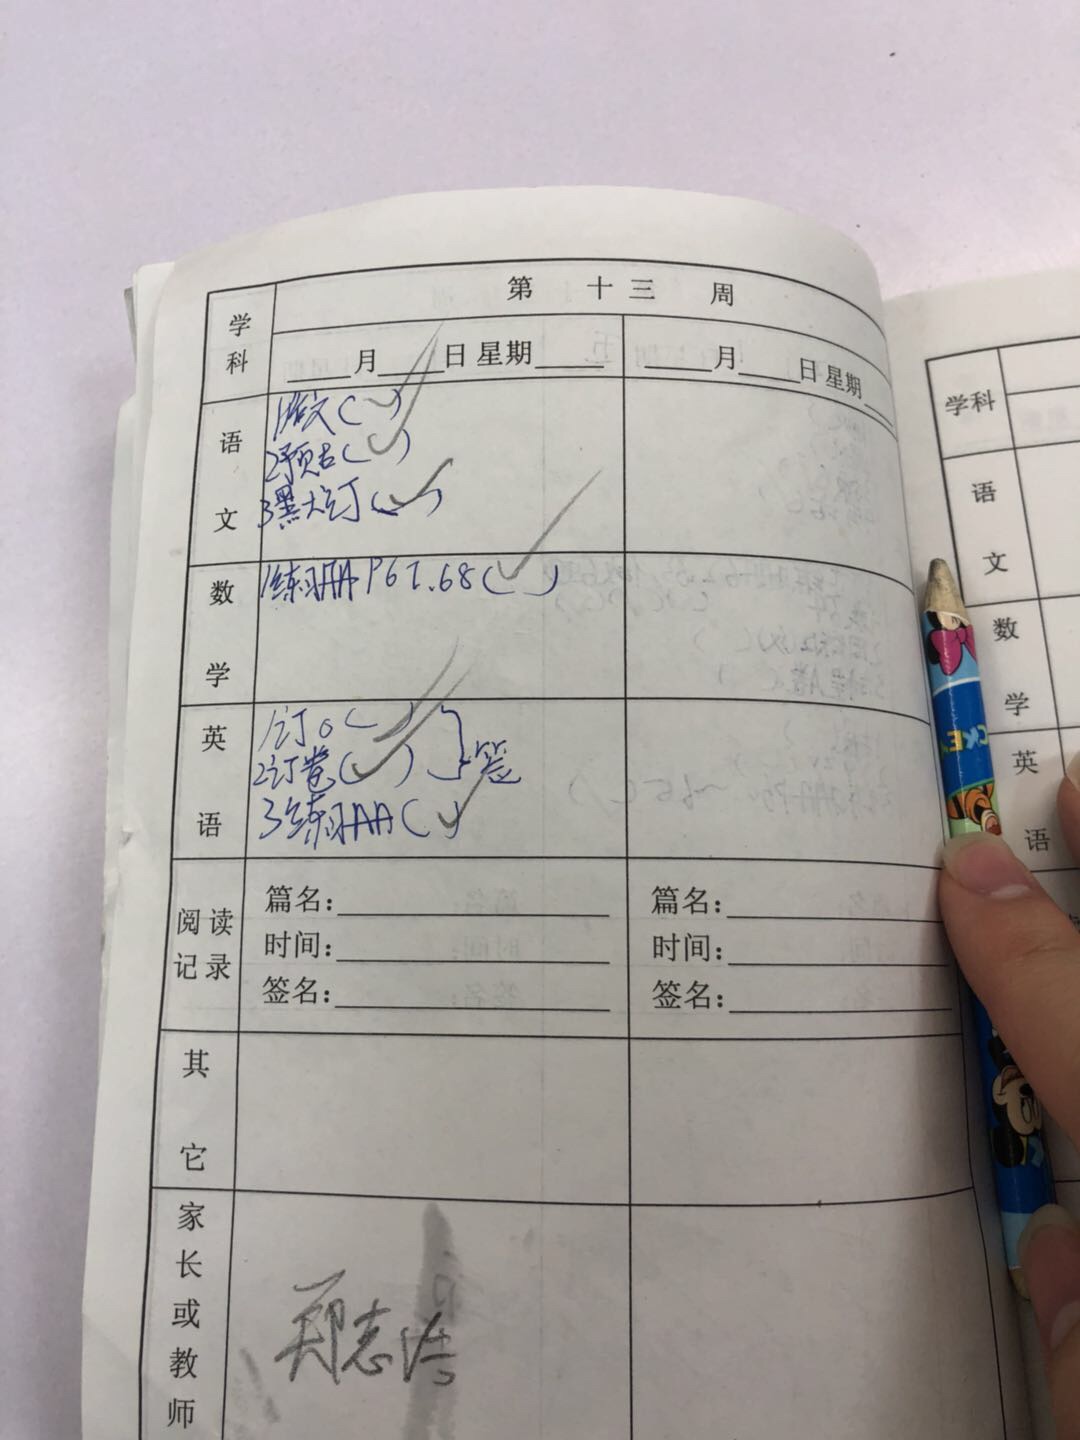 第 十 三 周
学科
___月___日 星期___ ___月___日 星期___
语文
1作文( )
2预古( )
3黑大订( )
数学
1练习册 P67.68( )
英语
1订o( )
2订卷( ) }签
3练习册AA( )
阅读记录
篇名: 篇名:
时间: 时间:
签名: 签名:
其它
家长或教师
郑志
学科
语文
数学
英语